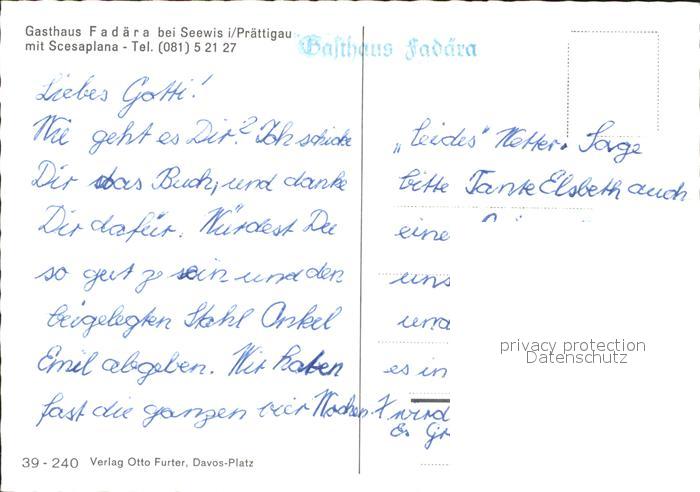 Gasthaus Fadära bei Seewis i/Prättigau
mit Scesaplana - Tel. (081) 5 21 27
Gasthaus Fadära
Liebes Gotti!
Wie geht es Dir? Ich schicke
Dir das Buch, und danke
Dir dafür. Würdest Du
so gut z sein und den
beigelegten Stahl Onkel
Emil abgeben. Wir haben
fast die ganzen vier Wochen
„leides" Wetter. Sage
bitte Tante Elsbeth auch
eine
uns
und
es in
wird
Es Gr
privacy protection
Datenschutz
39 - 240 Verlag Otto Furter, Davos-Platz